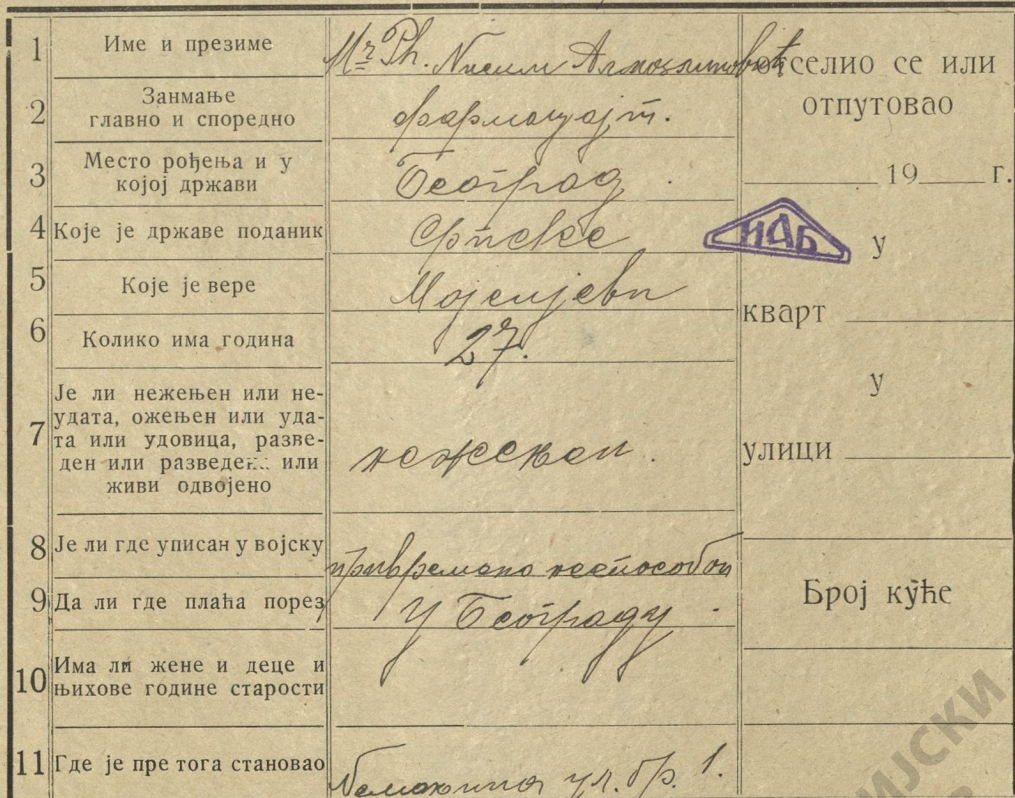 1 Име и презиме Mr Ph. Нисим Алмозлиновић
2 Занмање
главно и споредно фармацајт.
3 Место рођења и у
којој држави Београд
4 Које је државе поданик Српске
5 Које је вере Мојсијеве
6 Колико има година 27.
7 Је ли нежењен или не-
удата, ожењен или уда-
та или удовица, разве-
ден или разведена или
живи одвојено нежењен.
8 Је ли где уписан у војску привремено неспособан
9 Да ли где плаћа порез У Београду
10 Има ли жене и деце и
њихове године старости
11 Где је пре тога становао Немањина ул. бр. 1.
отселио се или
отпутовао
19 г.
ИАБ
у
кварт
у
улици
Број куће
ИЈСКИ